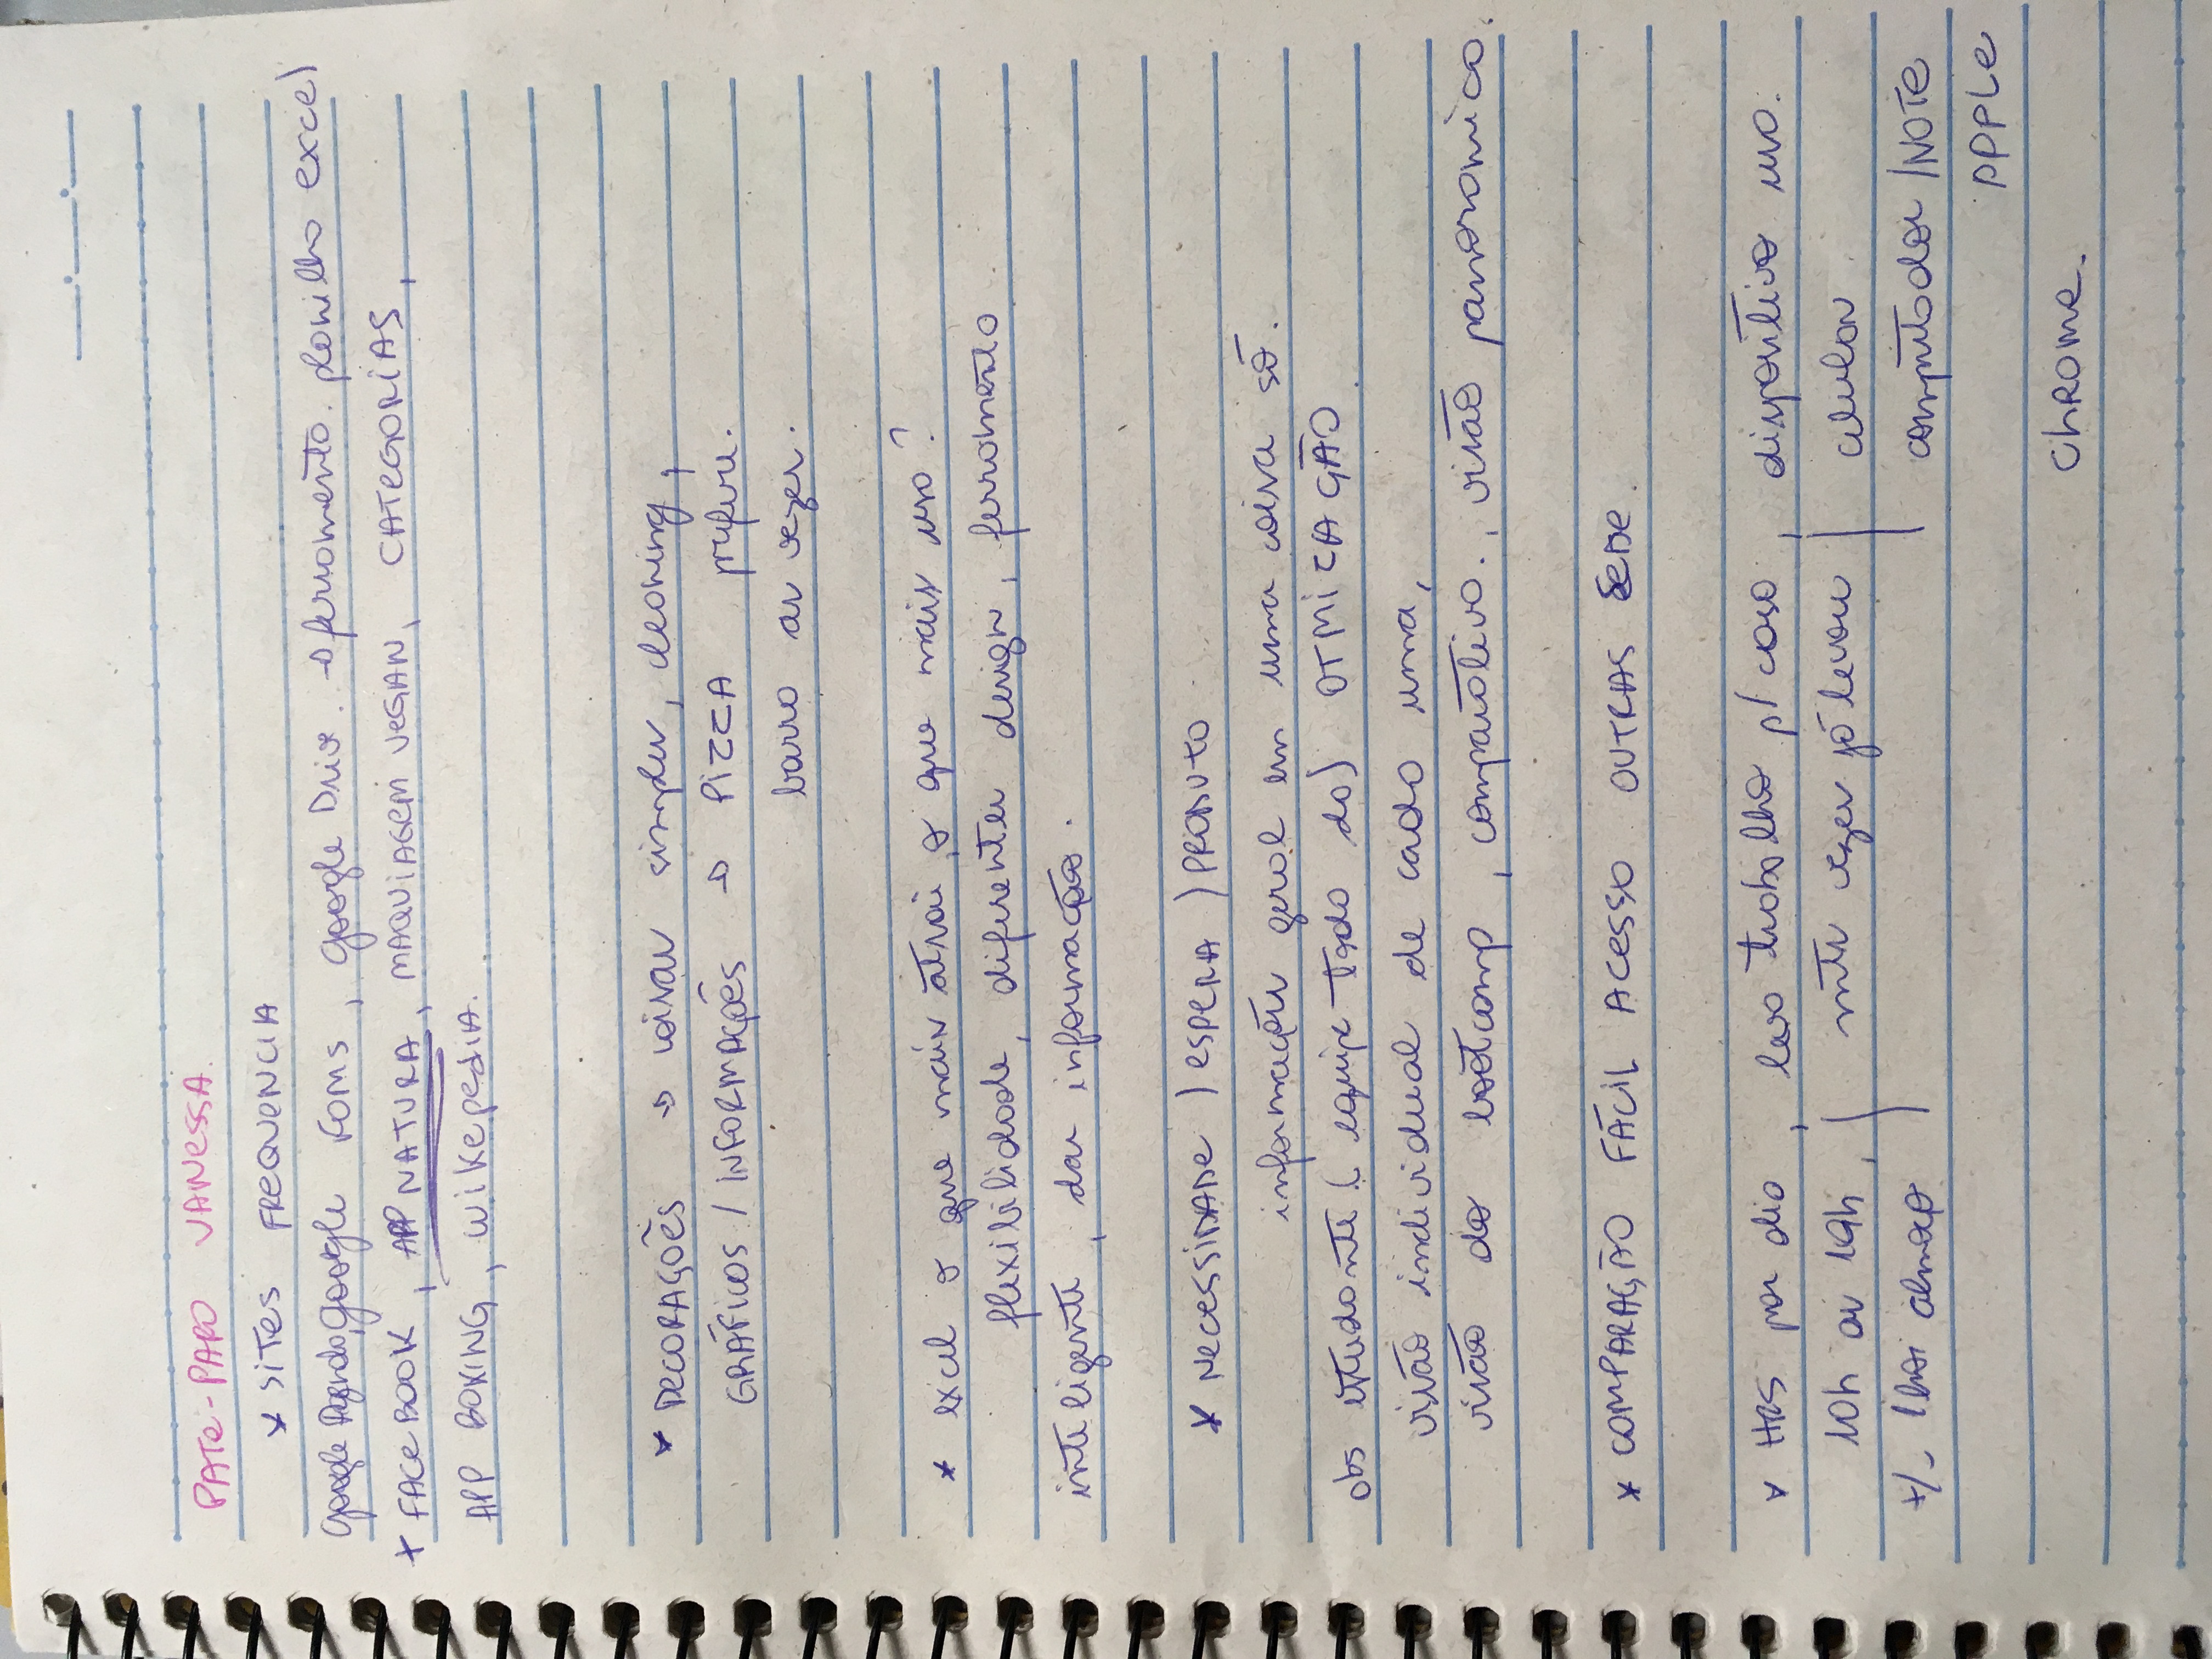 PATE-PAPO VANESSA.
* SITES FREQUENCIA
Google Agenda, Google Foms, Google Drive. → ferramenta. planilha excel
* FACEBOOK, APP NATURA, MAQUIAGEM VEGAN, CATEGORIAS,
APP BOXING, WIKEPEDIA.
* DECORAÇÕES → coisas simples, cleaning,
GRÁFICOS / INFORMAÇÕES → PIZZA prefere.
barra as vezes.
* excel o que mais atrai, o que mais uso?
flexibilidade, diferentes design, ferramenta
inteligente, dar informação.
* NECESSIDADE / ESPERA / PRODUTO
informações geral em uma coisa só.
obs estudante ( equipe toda do) OTMIZAÇÃO
visão individual de cada uma,
visão do bootcamp, comparativo., visão panoramica.
* COMPARAÇÃO FÁCIL ACESSO OUTRAS SEDE.
* HRS por dia, leva trabalho p/ casa, dispositivo uso.
10h as 19h, | mts vezes já levou | celular
+/- almoço | computador / NOTE
APPLE
CHROME.